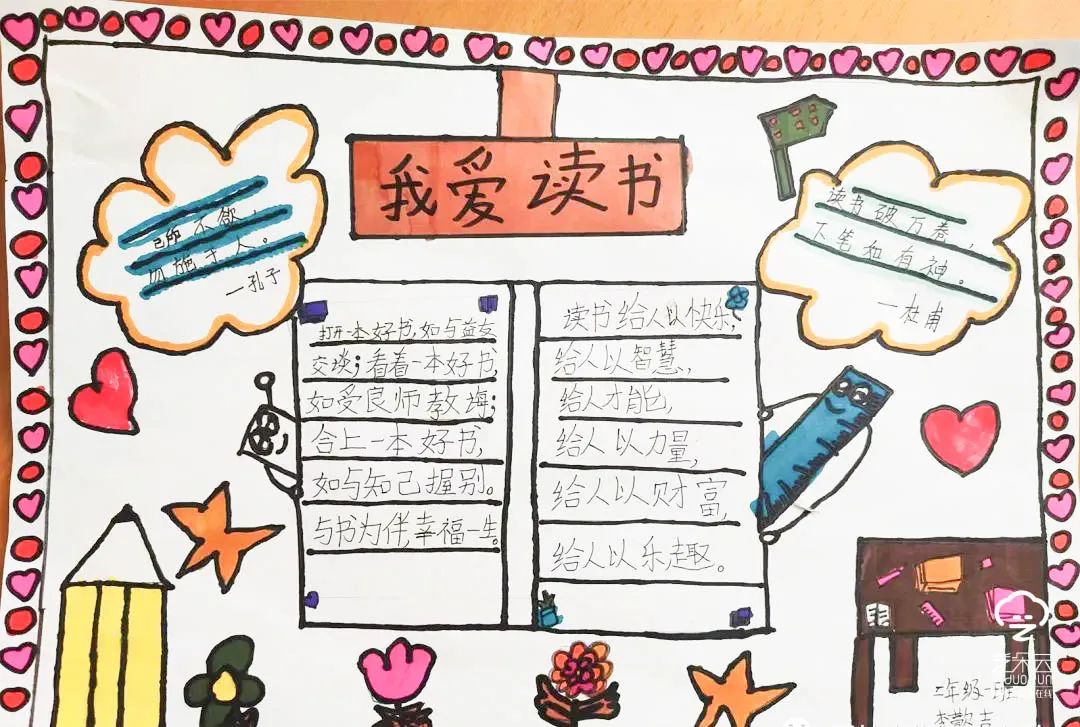 我爱读书
己所不欲，
勿施于人。
一孔子
读书破万卷，
下笔如有神。
一杜甫
打开一本好书,如与益友
交谈；看着一本好书,
如受良师教诲；
合上一本好书,
如与知己握别。
与书为伴,幸福一生。
读书给人以快乐，
给人以智慧，
给人才能，
给人以力量，
给人以财富，
给人以乐趣。
二年级一班